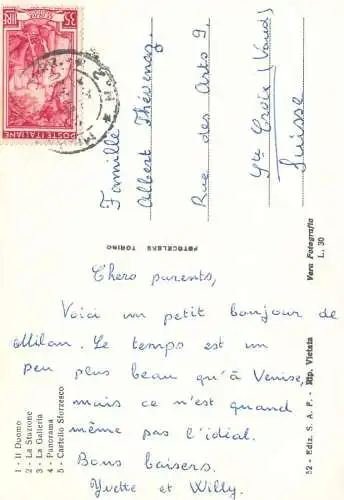 35 LIRE
POSTE ITALIANE
Famille
Albert Thévenaz
Rue des Arts 9
Ste Croix (Vaud)
Suisse
FOTOCELERE TORINO
Vera Fotografia
L. 30
Chers parents,
Voici un petit bonjour de
Milan. Le temps est un
peu plus beau qu'à Venise,
mais ce n'est quand
même pas l'idéal.
Bons baisers.
Yvette et Willy.
1 - Il Duomo
2 - La Stazione
3 - La Galleria
4 - Panorama
5 - Castello Sforzesco
52 - Ediz. S. A. F. - Rip. Vietata